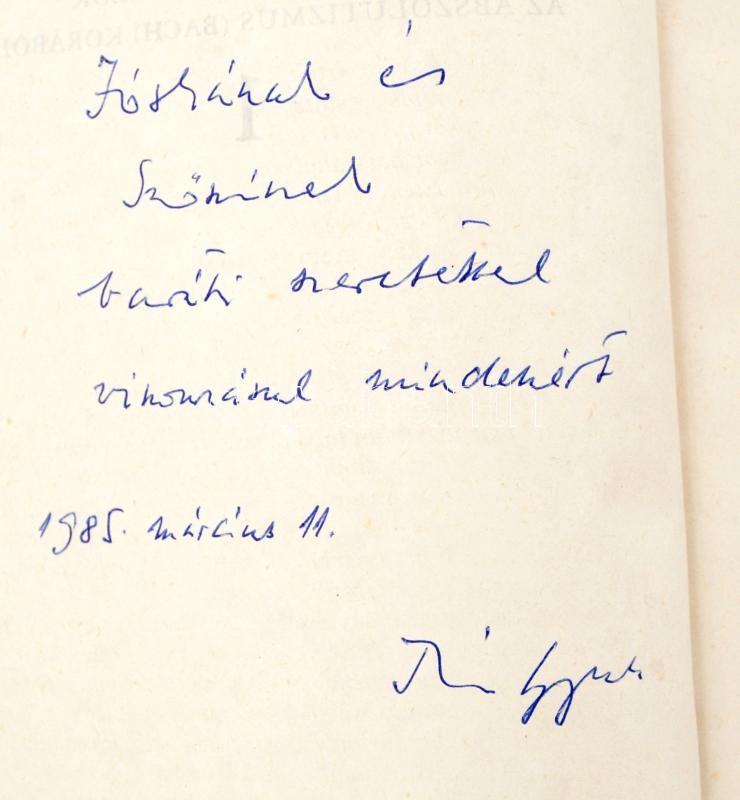 AZ ABSZOLUTIZMUS (BACH) KORÁBÓL
I
Jóskának és
Szöszinek
baráti szeretettel
viszonzásul mindenért
1985. március 11.